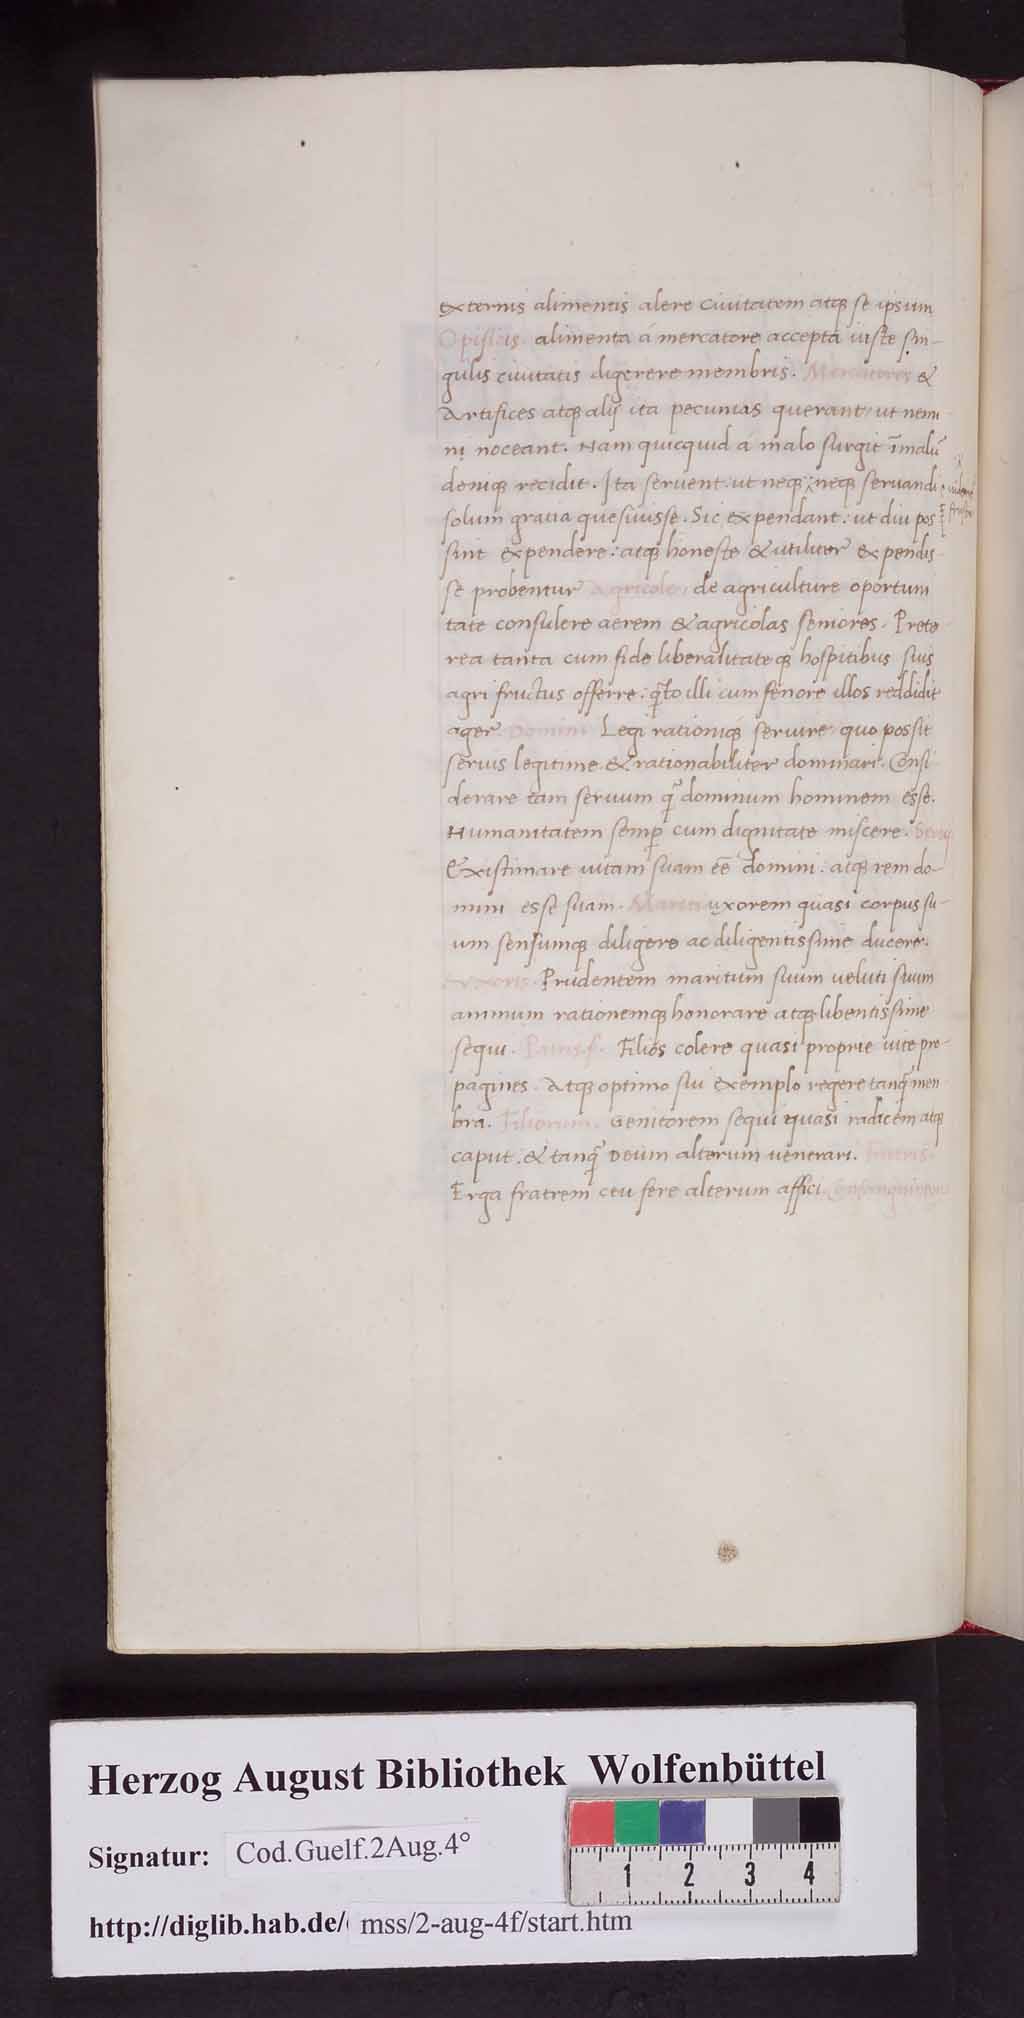 externis alimentis alere ciuitatem atq; se ipsum
Opificis. alimenta á mercatore accepta iuste sin-
gulis ciuitatis digerere membris. Mercatores &
Artifices atq; alij ita pecunias querant, ut nemi
ni noceant. Nam quicquid a malo surgit ī malū
deniq; recidit. Ita seruent: ut neq; neq; seruandi
solum gratia quesiuisse. Sic expendant: ut diu pos
sint expendere: atq; honeste & utiliter expendis-
se probentur Agricole, de agriculture oportuni
tate consulere aerem & agricolas seniores. Prete
rea tanta cum fide liberalitateq; hospitibus suis
agri fructus offerre: q̄to illi cum fenore illos reddidit
ager. Domini Legi rationiq; seruire, quo possit
seruis legitime & rationabiliter dominari. Consi
derare tam seruum q̄ dominum hominem esse.
Humanitatem semp cum dignitate miscere. Serui
Existimare uitam suam eē domini: atq; rem do-
mini esse suam. Mariti uxorem quasi corpus su-
um sensumq; diligere ac diligentissime ducere.
Uxoris. Prudentem maritum suum veluti suum
animum rationemq; honorare atq; libentissime
sequi. Patris.f. Filios colere quasi proprie uite pro-
pagines. Atq; optimo sui exemplo regere tanq̄ mem
bra. Filiorum. Genitorem sequi quasi radicem atq;
caput. & tanq̄ Deum alterum uenerari. Fratris.
Erga fratrem ceu fere alterum affici. Consanguineorum
Herzog August Bibliothek Wolfenbüttel
Signatur: Cod.Guelf.2Aug.4°
1 2 3 4
http://diglib.hab.de/ mss/2-aug-4f/start.htm